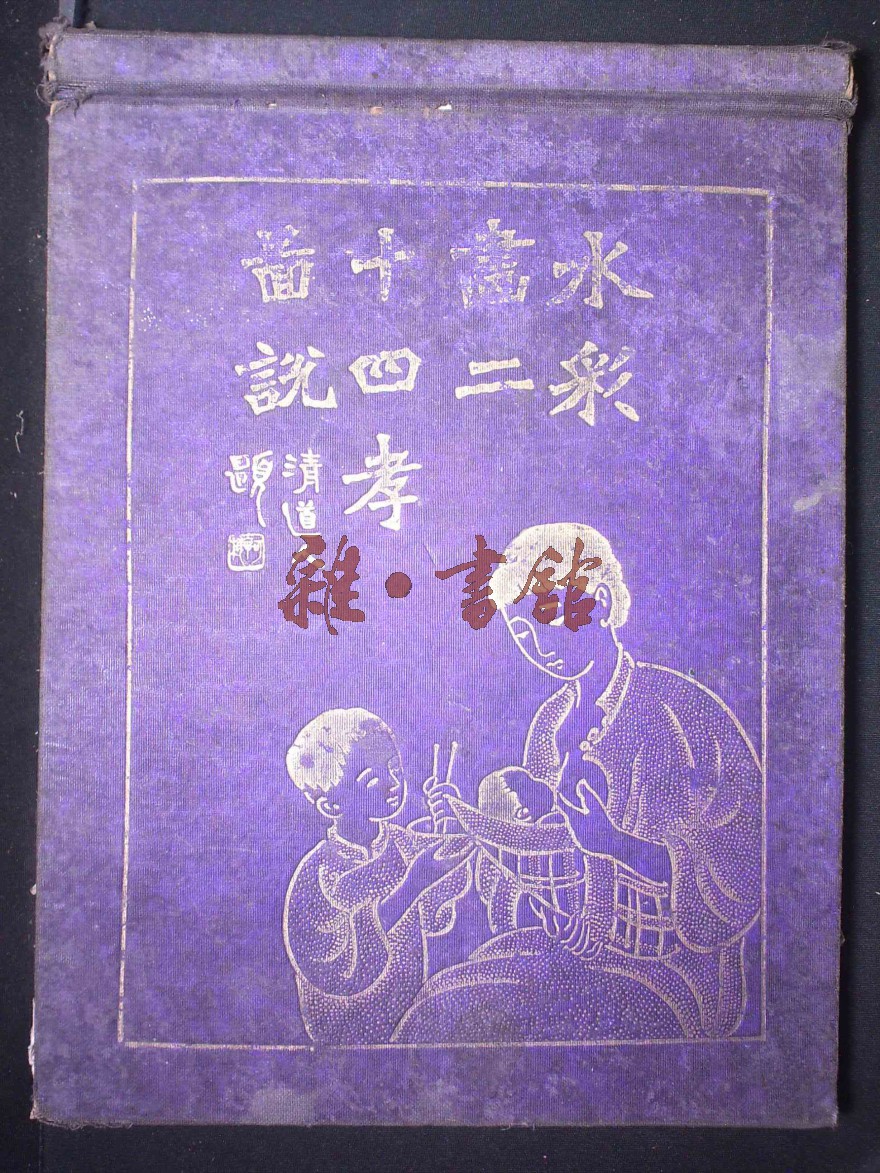 水彩
畫二
十四孝
啚說
清道
題
雜·書館